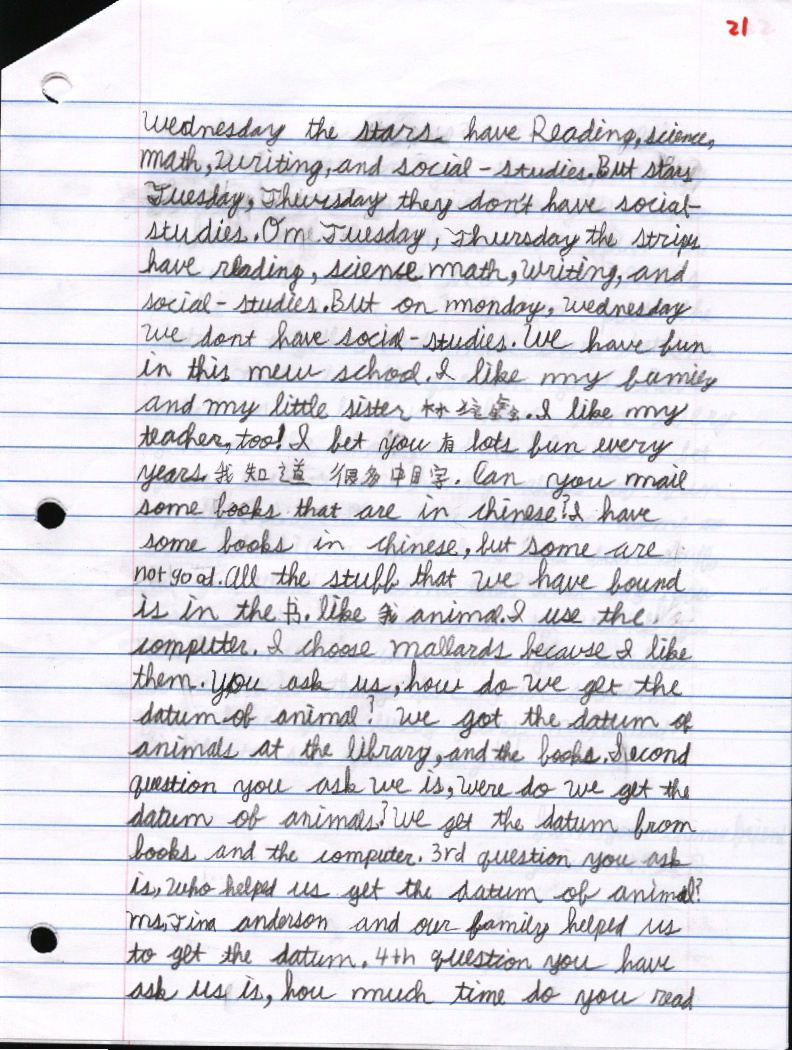 21
Wednesday the stars have Reading, science,
math, writing, and social-studies. But stars
Tuesday, Thursday they don't have social-
studies. On Tuesday, Thursday the strips
have reading, science math, writing, and
social-studies. But on monday, wednesday
we dont have social-studies. We have fun
in this new school. I like my family
and my little sister 林. I like my
teacher, too! I bet you 有 lots fun every
years. 我 知 道 很多 中国字. Can you mail
some books that are in chinese? I have
some books in chinese, but some are
not good. All the stuff that we have found
is in the 书. like 我 animal. I use the
computer. I choose mallards because I like
them. You ask us, how do we get the
datum of animal? We got the datum of
animals at the library, and the books. Second
question you ask we is, were do we get the
datum of animals? We get the datum from
books and the computer. 3rd question you ask
is, who helped us get the datum of animal?
ms. Tina anderson and our family helped us
to get the datum. 4th question you have
ask us is, how much time do you read